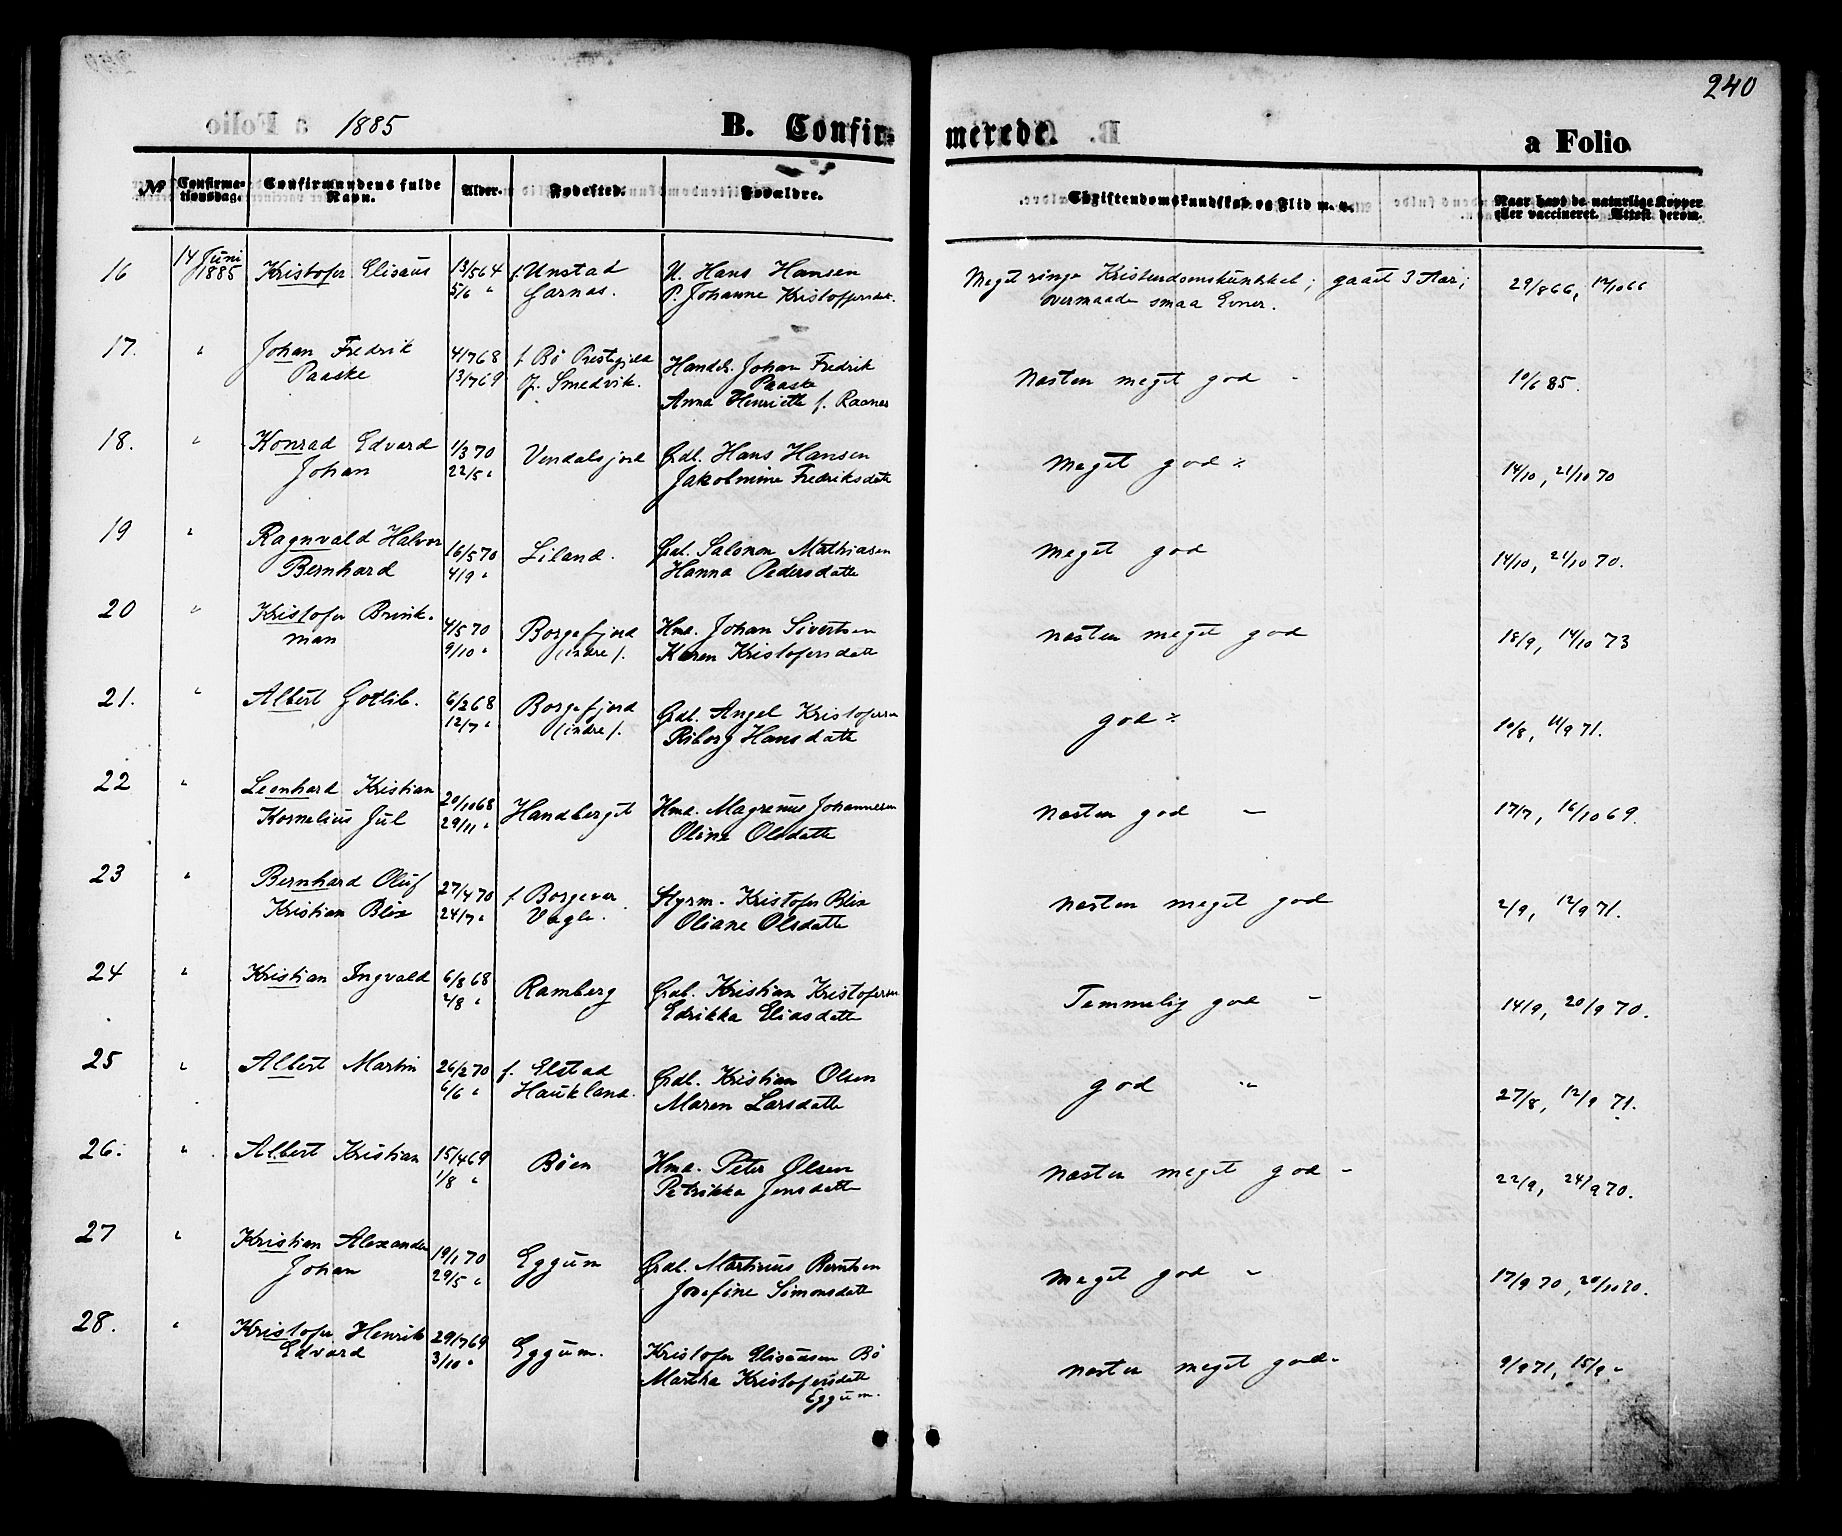 240
1885 B. Confirmerede. a Folio
No Confirmationsdag. Confirmandens fulde Navn. Alder. Fødested. Forældre. Christendomskundskab og Flid m. v. Naar havt de naturlige Kopper eller vaccineret. Attest derom.
16 14 Juni 1885 Kristofer Elisæus 13/5 64 f. Unstad U. Hans Hansen Meget ringe Kristendomskundskab; gaaet 3 Aar; 29/8 66,
5/6 " P. Johanne Kristoffersdat. overmaade smaa Evner.
17. " Johan Fredrik 4/7 68 f. Bø Prestegjeld Handel. Johan Fredrik Næsten meget god - 10/6 85.
Paaske 13/7 69 Smedvik. Paaske
Anna Henriette f. Raaner
18. " Konrad Edvard 1/3 70 Vendalsjord Grdb. Hans Hansen Meget god 14/10, 21/10 70
Johan 22/5 " Jakobmine Fredriksdatt
19 " Ragnvald Halvor 16/5 70 Liland. Grdb. Salomon Mathiasen Meget god 14/10, 21/10 70.
Bernhard 4/9 " Hanna Pedersdatt
20 " Kristofer Brink- 4/5 70 Borgefjord Hmd. Johan Sivertsen Næsten meget god 18/9, 14/10 73
man 9/10 " (indre). Karen Kristofersdatt
21. " Albert Gotlib. 6/2 68 Borgefjord Grdb. Angel Kristofersen god 10/8, 11/9 71.
12/7 " (indre). Riborg Hansdatt
22 " Leonhard Kristian 20/10 68 Handberget Hmd. Magnus Johannesen Næsten god - 17/7, 16/10 69.
Kornelius Jul 29/11 " Oline Olsdatt
23 " Bernhard Oluf 27/4 70 f. Borgevær Styrm. Kristofer Blix Næsten meget god 2/9, 12/9 71.
Kristian Blix 24/7 " Vagle. Oliane Olsdatt
24 " Kristian Ingvald 6/8 68 Ramberg Grdb. Kristian Kristofersen Temmelig god - 14/9, 20/9 70.
Edrikka Eliasdatt
25 " Albert Martin 26/2 70 f. Elstad Grdb. Kristian Olsen god " 27/8, 12/9 71.
6/6 " Haukland. Maren Larsdatt
26. " Albert Kristian 15/4 69 Bøen Hmd. Peter Olsen Næsten meget god - 22/9, 24/9 70.
1/8 " Petrikka Jensdatt
27 " Kristian Alexander 19/1 70 Eggum Grdb. Martinus Berntsen Meget god - 17/9 70, 20/10 70.
Johan 29/5 " Josefine Simonsdatt
28. " Kristofer Henrik 29/7 69 Eggum. Kristofer Elisæusen Bø Næsten meget god - 9/9 71, 15/9 "
Edvard 3/10 " Martha Kristofersdatt
Eggum.